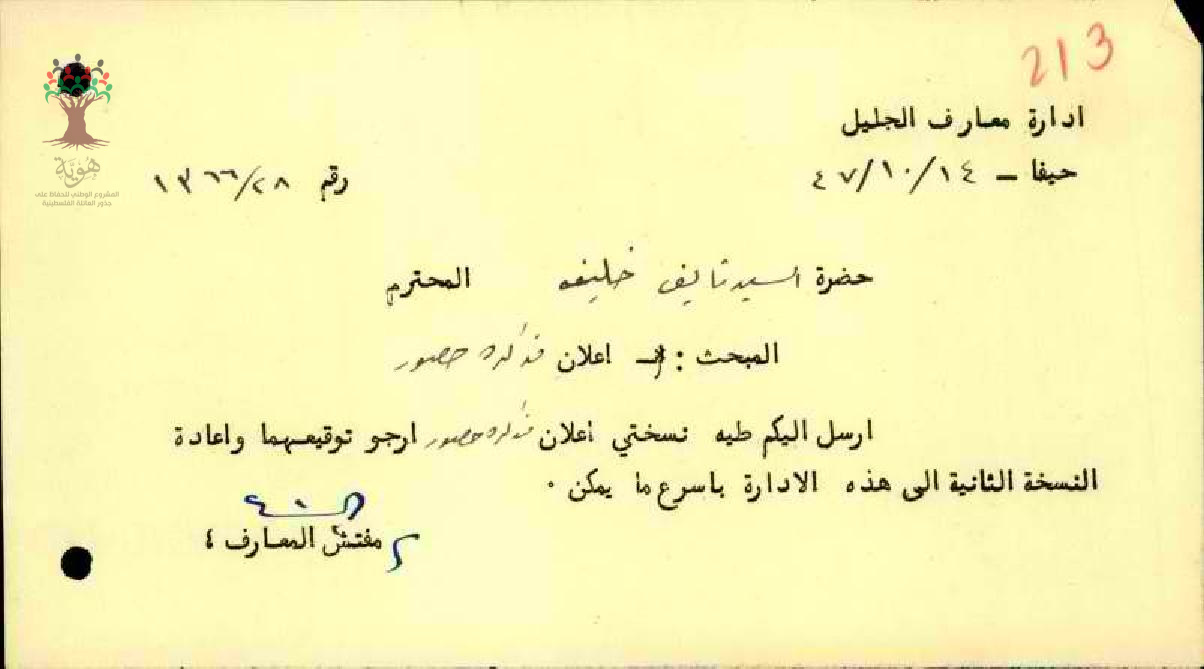 213
ادارة معارف الجليل
حيفا ـ ٤٧/١٠/١٤
رقم ١٣٦٦/٢٨
هُوِيَّة
المشروع الوطني للحفاظ على
جذور العائلة الفلسطينية
حضرة السيد نايف خليفه المحترم
المبحث : ـ اعلان مذاكره حضور
ارسل اليكم طيه نسختي اعلان مذاكره حضور ارجو توقيعهما واعادة
النسخة الثانية الى هذه الادارة باسرع ما يمكن ٠
مفتش المعارف ٤